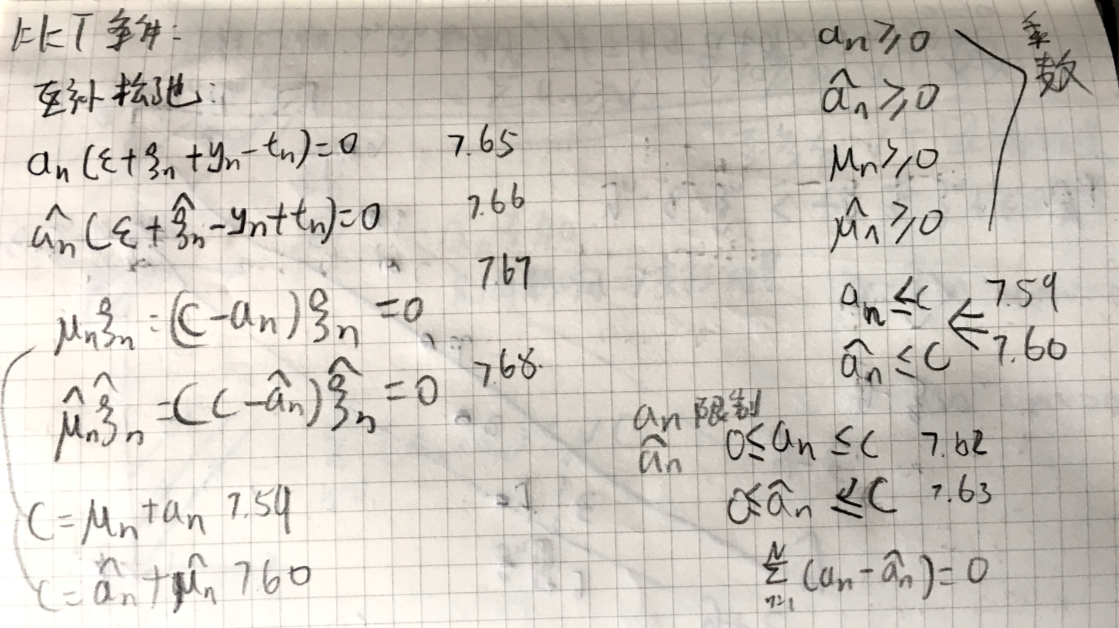 KKT条件:
互补松弛:
aₙ(ε+ξₙ+yₙ-tₙ)=0 7.65
âₙ(ε+ξ̂ₙ-yₙ+tₙ)=0 7.66
7.67
μₙξₙ=(C-aₙ)ξₙ=0
μ̂ₙξ̂ₙ=(C-âₙ)ξ̂ₙ=0 7.68
C=μₙ+aₙ 7.59
C=âₙ+μ̂ₙ 7.60
aₙ≥0
âₙ≥0
μₙ≥0
μ̂ₙ≥0
系数
aₙ≤C ⇐ 7.59
âₙ≤C 7.60
aₙ 限制
âₙ 0≤aₙ≤C 7.62
0≤âₙ≤C 7.63
∑ₙ₌₁ᴺ(aₙ-âₙ)=0